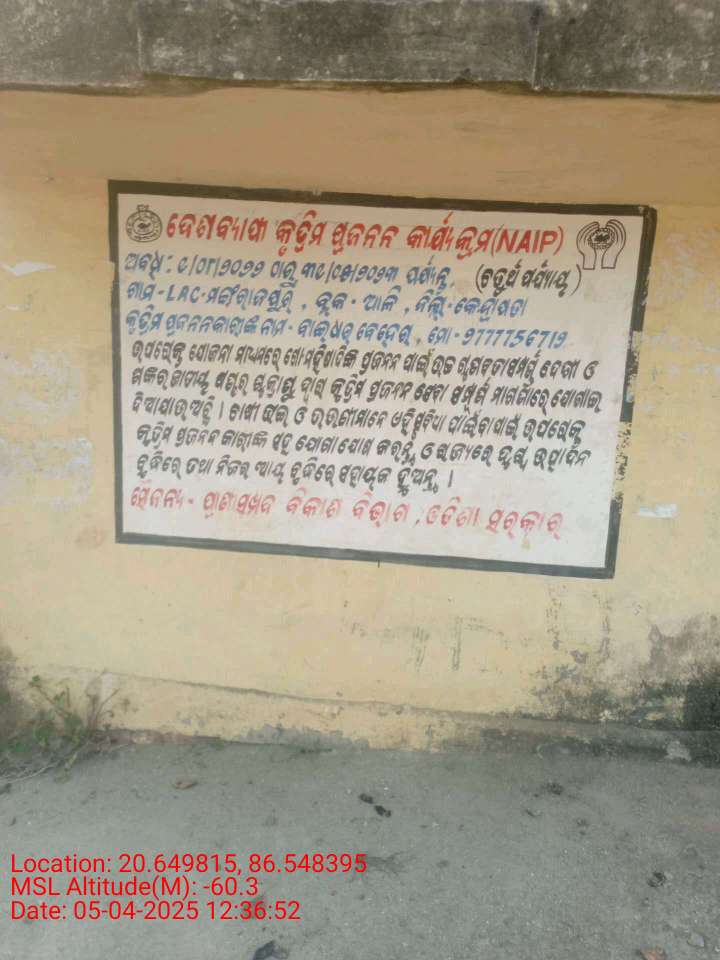 ଦେଶବ୍ୟାପୀ କୃତ୍ରିମ ପ୍ରଜନନ କାର୍ଯ୍ୟକ୍ରମ (NAIP)
ଅବଧି : ୧/୦୮/୨୦୨୨ ଠାରୁ ୩୧/୦୫/୨୦୨୩ ପର୍ଯ୍ୟନ୍ତ, (ଚତୁର୍ଥ ପର୍ଯ୍ୟାୟ)
ଗ୍ରାମ - LAC - ମଙ୍ଗରାଜପୁର, ବ୍ଲକ - ଆଳି, ଜିଲ୍ଲା - କେନ୍ଦ୍ରାପଡା
କୃତ୍ରିମ ପ୍ରଜନନକାରୀଙ୍କ ନାମ - ବେହେରା, ମୋ - 9777756719
ଉପରୋକ୍ତ ଯୋଜନା ମାଧ୍ୟମରେ ଗୋମହିଷାଦିଙ୍କ ପ୍ରଜନନ ପାଇଁ ଉଚ୍ଚ ଗୁଣବତ୍ତାସମ୍ପନ୍ନ ଦେଶୀ ଓ
ଶଙ୍କର ଜାତୀୟ ଷଣ୍ଢର ଶୁକ୍ରାଣୁ ଦ୍ୱାରା କୃତ୍ରିମ ପ୍ରଜନନ ସେବା ସମ୍ପୂର୍ଣ୍ଣ ମାଗଣାରେ ଯୋଗାଇ
ଦିଆଯାଉଅଛି । ଚାଷୀ ଭାଇ ଓ ଭଉଣୀମାନେ ଏହି ସୁବିଧା ପାଇବା ପାଇଁ ଉପରୋକ୍ତ
କୃତ୍ରିମ ପ୍ରଜନନ କାରୀଙ୍କ ସହ ଯୋଗାଯୋଗ କରନ୍ତୁ ଓ ରାଜ୍ୟରେ ଦୁଗ୍ଧ ଉତ୍ପାଦନ
ବୃଦ୍ଧିରେ ତଥା ନିଜର ଆୟ ବୃଦ୍ଧିରେ ସହାୟକ ହୁଅନ୍ତୁ ।
ସୌଜନ୍ୟ - ପ୍ରାଣୀସମ୍ପଦ ବିକାଶ ବିଭାଗ, ଓଡିଶା ସରକାର
Location: 20.649815, 86.548395
MSL Altitude(M): -60.3
Date: 05-04-2025 12:36:52